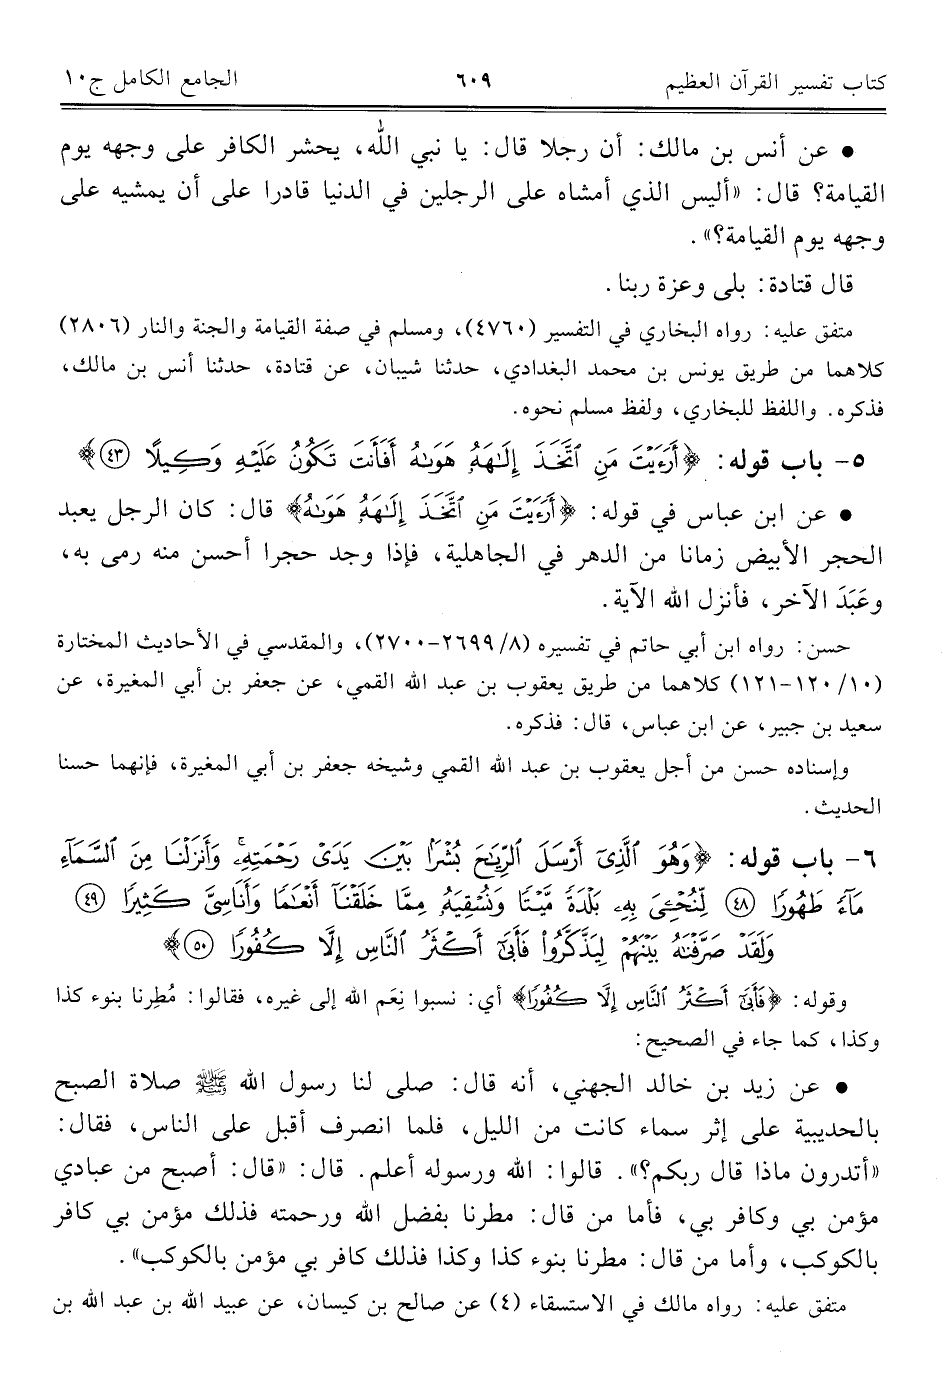 كتاب تفسير القرآن العظيم ٦٠٩ الجامع الكامل ج١٠
● عن أنس بن مالك: أن رجلا قال: يا نبي الله، يحشر الكافر على وجهه يوم
القيامة؟ قال: «أليس الذي أمشاه على الرجلين في الدنيا قادرا على أن يمشيه على
وجهه يوم القيامة؟».
قال قتادة: بلى وعزة ربنا.
متفق عليه: رواه البخاري في التفسير (٤٧٦٠)، ومسلم في صفة القيامة والجنة والنار (٢٨٠٦)
كلاهما من طريق يونس بن محمد البغدادي، حدثنا شيبان، عن قتادة، حدثنا أنس بن مالك،
فذكره. واللفظ للبخاري، ولفظ مسلم نحوه.
٥- باب قوله: ﴿أَرَءَيْتَ مَنِ ٱتَّخَذَ إِلَٰهَهُۥ هَوَىٰهُ أَفَأَنتَ تَكُونُ عَلَيْهِ وَكِيلًا ٤٣﴾
● عن ابن عباس في قوله: ﴿أَرَءَيْتَ مَنِ ٱتَّخَذَ إِلَٰهَهُۥ هَوَىٰهُ﴾ قال: كان الرجل يعبد
الحجر الأبيض زمانا من الدهر في الجاهلية، فإذا وجد حجرا أحسن منه رمى به،
وعَبَدَ الآخر، فأنزل الله الآية.
حسن: رواه ابن أبي حاتم في تفسيره (٨/ ٢٦٩٩-٢٧٠٠)، والمقدسي في الأحاديث المختارة
(١٠/ ١٢٠-١٢١) كلاهما من طريق يعقوب بن عبد الله القمي، عن جعفر بن أبي المغيرة، عن
سعيد بن جبير، عن ابن عباس، قال: فذكره.
وإسناده حسن من أجل يعقوب بن عبد الله القمي وشيخه جعفر بن أبي المغيرة، فإنهما حسنا
الحديث.
٦- باب قوله: ﴿وَهُوَ ٱلَّذِىٓ أَرْسَلَ ٱلرِّيَٰحَ بُشْرًۢا بَيْنَ يَدَىْ رَحْمَتِهِۦ ۚ وَأَنزَلْنَا مِنَ ٱلسَّمَآءِ
مَآءً طَهُورًا ٤٨ لِّنُحْـِۧىَ بِهِۦ بَلْدَةً مَّيْتًا وَنُسْقِيَهُۥ مِمَّا خَلَقْنَآ أَنْعَٰمًا وَأَنَاسِىَّ كَثِيرًا ٤٩
وَلَقَدْ صَرَّفْنَٰهُ بَيْنَهُمْ لِيَذَّكَّرُوا۟ فَأَبَىٰٓ أَكْثَرُ ٱلنَّاسِ إِلَّا كُفُورًا ٥٠﴾
وقوله: ﴿فَأَبَىٰٓ أَكْثَرُ ٱلنَّاسِ إِلَّا كُفُورًا﴾ أي: نسبوا نِعَم الله إلى غيره، فقالوا: مُطِرنا بنوء كذا
وكذا، كما جاء في الصحيح:
● عن زيد بن خالد الجهني، أنه قال: صلى لنا رسول الله ﷺ صلاة الصبح
بالحديبية على إثر سماء كانت من الليل، فلما انصرف أقبل على الناس، فقال:
«أتدرون ماذا قال ربكم؟». قالوا: الله ورسوله أعلم. قال: «قال: أصبح من عبادي
مؤمن بي وكافر بي، فأما من قال: مطرنا بفضل الله ورحمته فذلك مؤمن بي كافر
بالكوكب، وأما من قال: مطرنا بنوء كذا وكذا فذلك كافر بي مؤمن بالكوكب».
متفق عليه: رواه مالك في الاستسقاء (٤) عن صالح بن كيسان، عن عبيد الله بن عبد الله بن